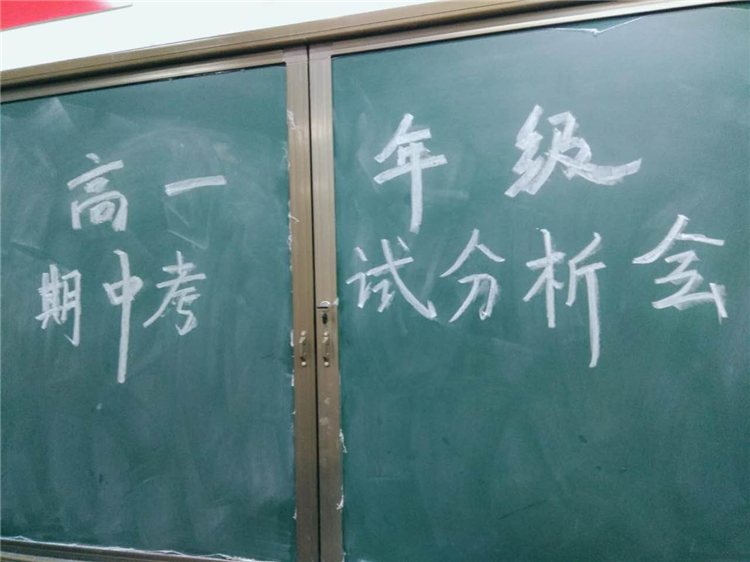 高一年级
期中考试分析会